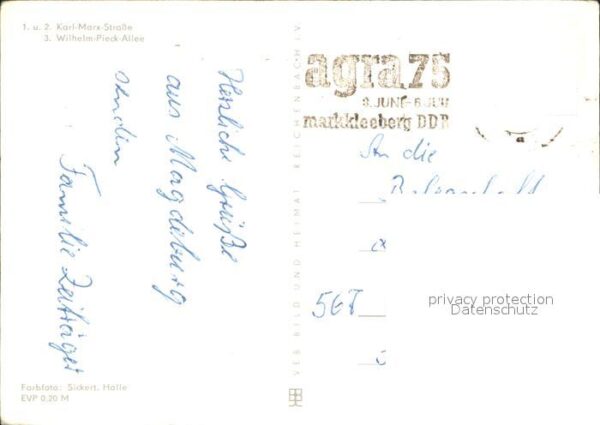 1. u. 2. Karl-Marx-Straße
3. Wilhelm-Pieck-Allee
Herzliche Grüße
aus Magdeburg
senden
Familie
Farbfoto: Sickert, Halle
EVP 0,20 M
VEB BILD UND HEIMAT REICHENBACH I. V.
agra75
8.JUNI-6.JULI
markkleeberg DDR
An die
privacy protection
Datenschutz